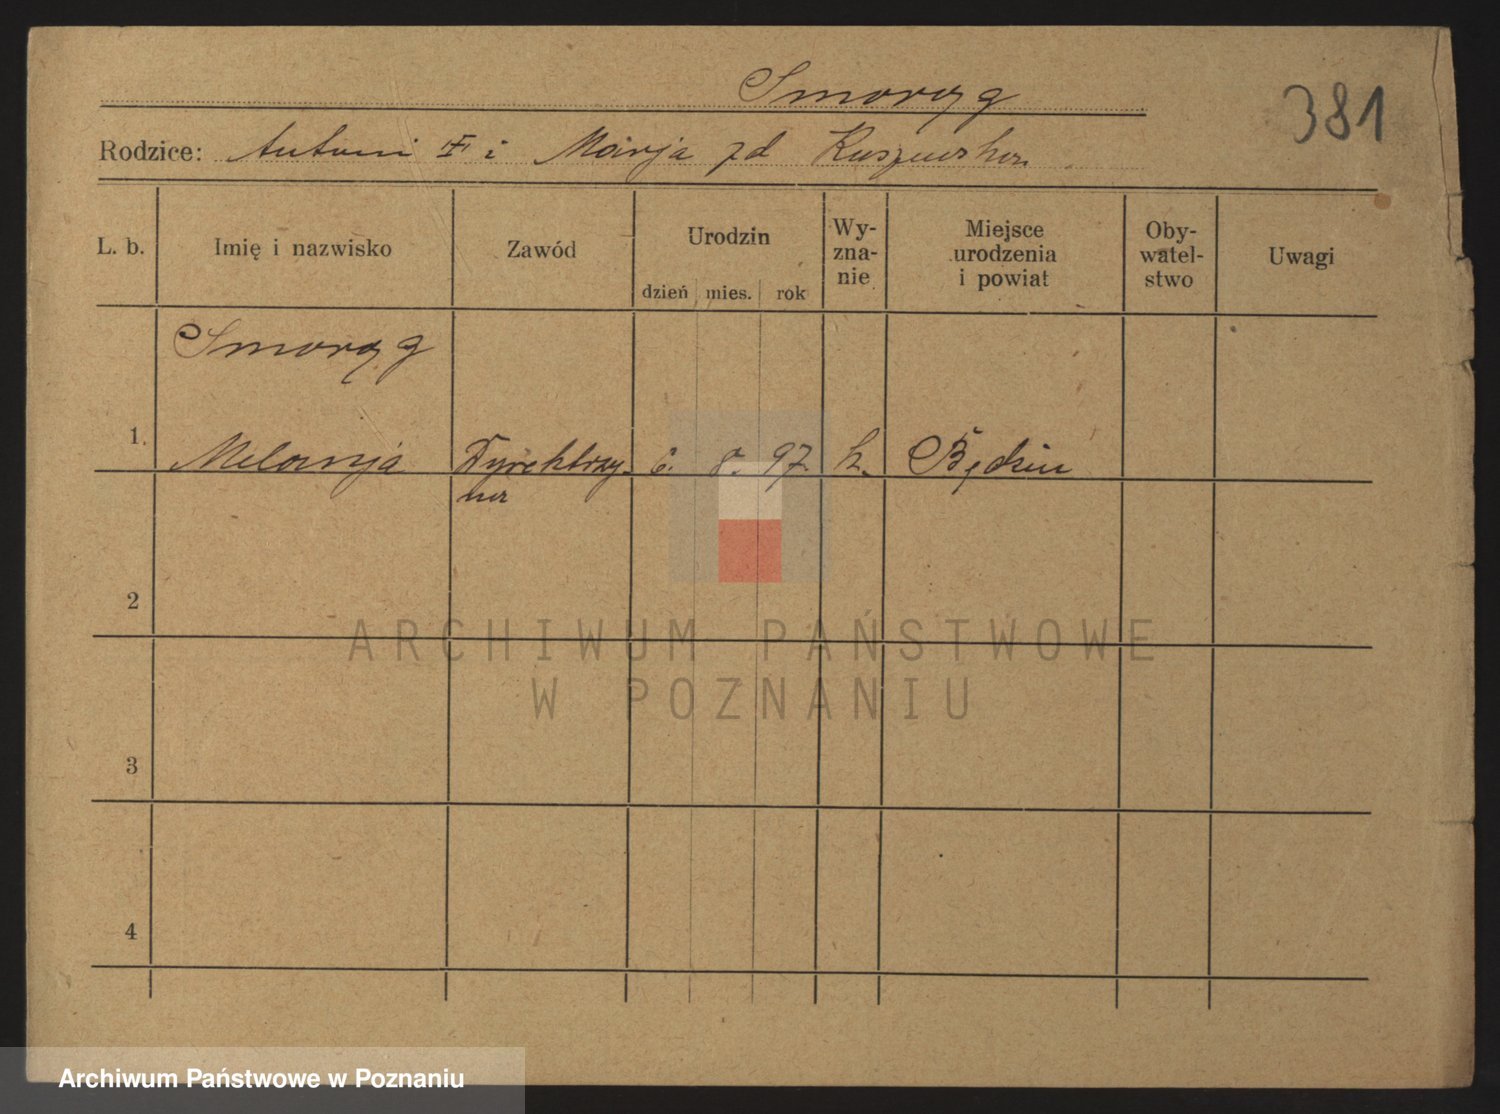 Smorąg
381
Rodzice: Antoni i Marja zd Kuszewska
L. b.
Imię i nazwisko
Zawód
Urodzin
dzień mies. rok
Wy-
zna-
nie
Miejsce
urodzenia
i powiat
Oby-
watel-
stwo
Uwagi
Smorąg
1. Melanja Dyrektrzy- 6. 8. 97. k. Będzin
na
2
3
4
ARCHIWUM PAŃSTWOWE
W POZNANIU
Archiwum Państwowe w Poznaniu